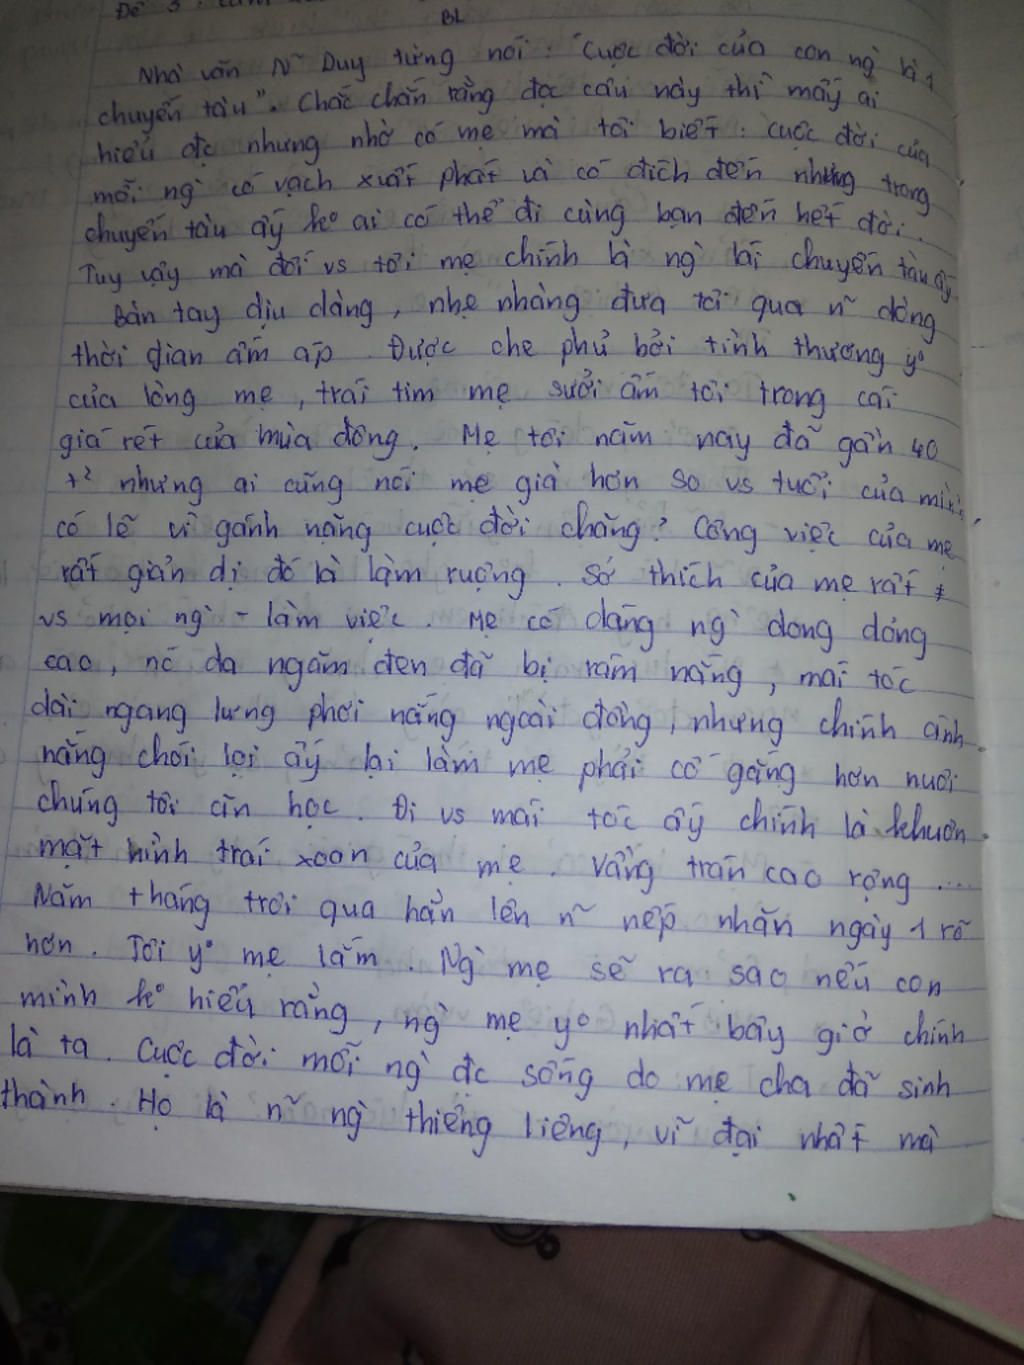 Đề 3:
BL
Nhà văn Ñ Duy từng nói: "Cuộc đời của con ng` là 1
chuyến tàu". Chắc chắn rằng đọc câu này thì mấy ai
hiểu đc nhưng nhờ có mẹ mà tôi biết: cuộc đời của
mỗi ng` có vạch xuất phát và có đích đến nhưng trong
chuyến tàu ấy k° ai có thể đi cùng bạn đến hết đời.
Tuy vậy mà đối vs tôi mẹ chính là ng` lái chuyến tàu ấy
Bàn tay dịu dàng, nhẹ nhàng đưa tôi qua ñ dòng
thời gian ấm áp. Được che phủ bởi tình thương y°
của lòng mẹ, trái tim mẹ sưởi ấm tôi trong cái
giá rét của mùa đông. Mẹ tôi năm nay đã gần 40
t² nhưng ai cũng nói mẹ già hơn so vs tuổi của mình
có lẽ vì gánh nặng cuộc đời chăng? Công việc của mẹ
rất giản dị đó là làm ruộng. Sở thích của mẹ rất ≠
vs mọi ng` - làm việc. Mẹ có dáng ng` dong dỏng
cao, nó da ngăm đen đã bị rám nắng, mái tóc
dài ngang lưng phơi nắng ngoài đồng, nhưng chính ánh
nắng chói lọi ấy lại làm mẹ phải cố gắng hơn nuôi
chúng tôi ăn học. Đi vs mái tóc ấy chính là khuôn
mặt hình trái xoan của mẹ. Vầng trán cao rộng ....
Năm tháng trôi qua hằn lên ñ nếp nhăn ngày 1 rõ
hơn. Tôi y° mẹ lắm. Ng` mẹ sẽ ra sao nếu con
mình k° hiểu rằng, ng` mẹ y° nhất bây giờ chính
là ta. Cuộc đời mỗi ng` đc sống do mẹ cha đã sinh
thành. Họ là ñ ng` thiêng liêng, vĩ đại nhất mà